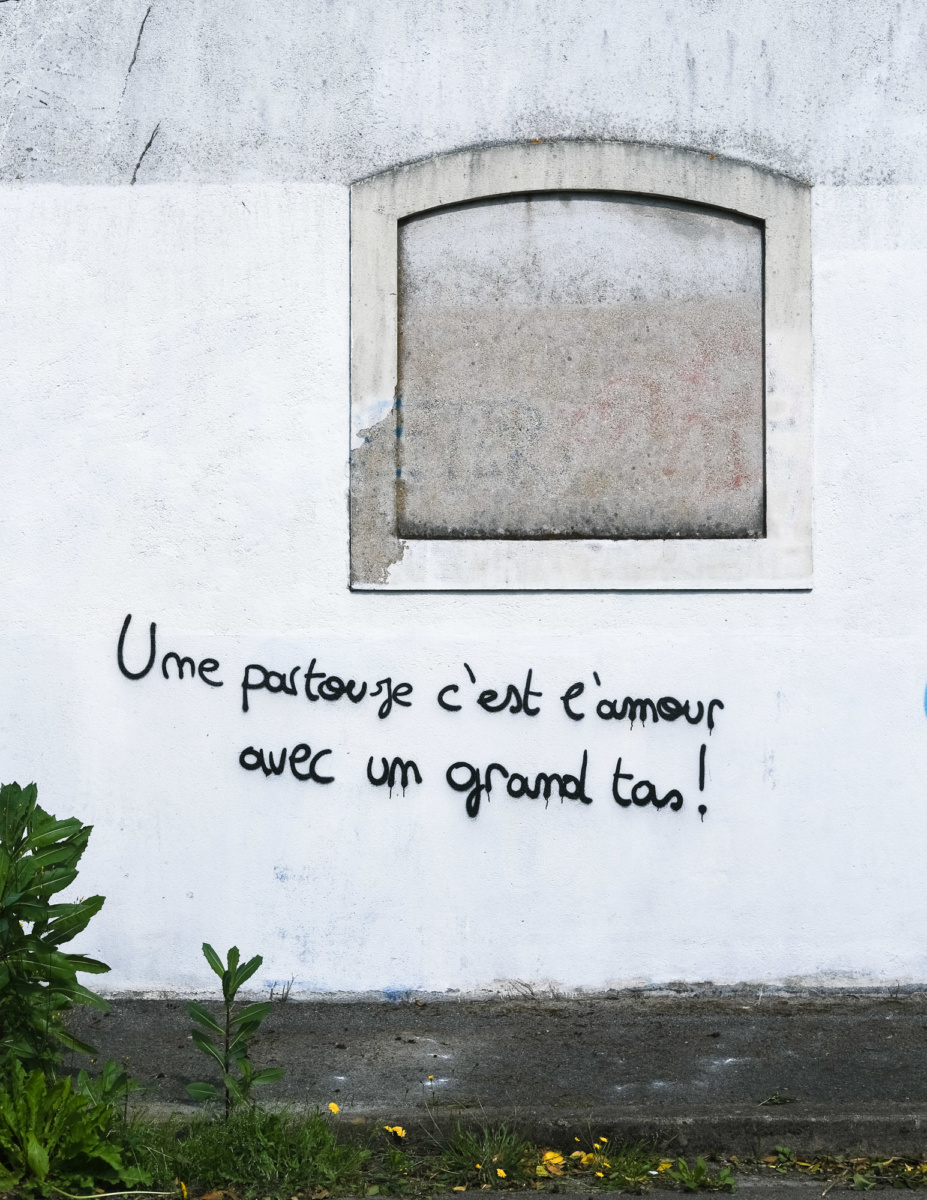 Une partouze c'est l'amour
avec un grand tas !